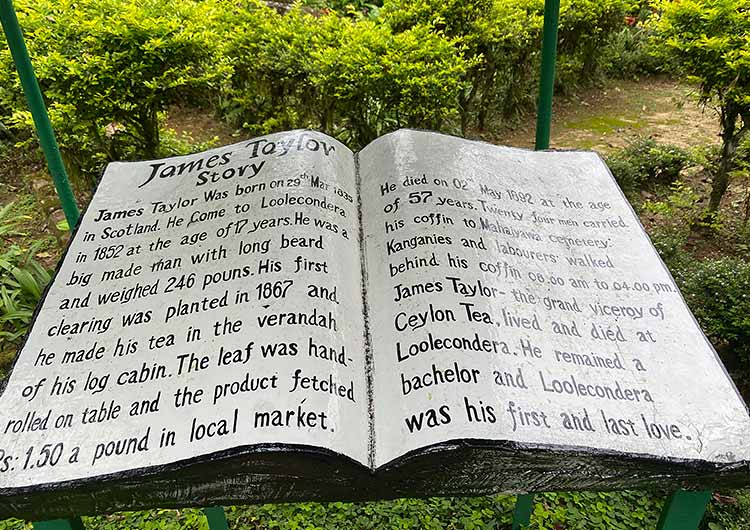 James Taylor
Story
James Taylor Was born on 29th Mar 1835
in Scotland. He Come to Loolecondera
in 1852 at the age of 17 years. He was a
big made man with long beard
and weighed 246 pouns. His first
clearing was planted in 1867 and
he made his tea in the verandah
of his log cabin. The leaf was hand-
rolled on table and the product fetched
Ps: 1.50 a pound in local market.
He died on 02nd May 1892 at the age
of 57 years. Twenty four men carried
his coffin to Mahaiyawa cemetery:
Kanganies and labourers walked
behind his coffin 08.00 am to 04.00 pm
James Taylor- the grand viceroy of
Ceylon Tea, lived and died at
Loolecondera. He remained a
bachelor and Loolecondera
was his first and last love.